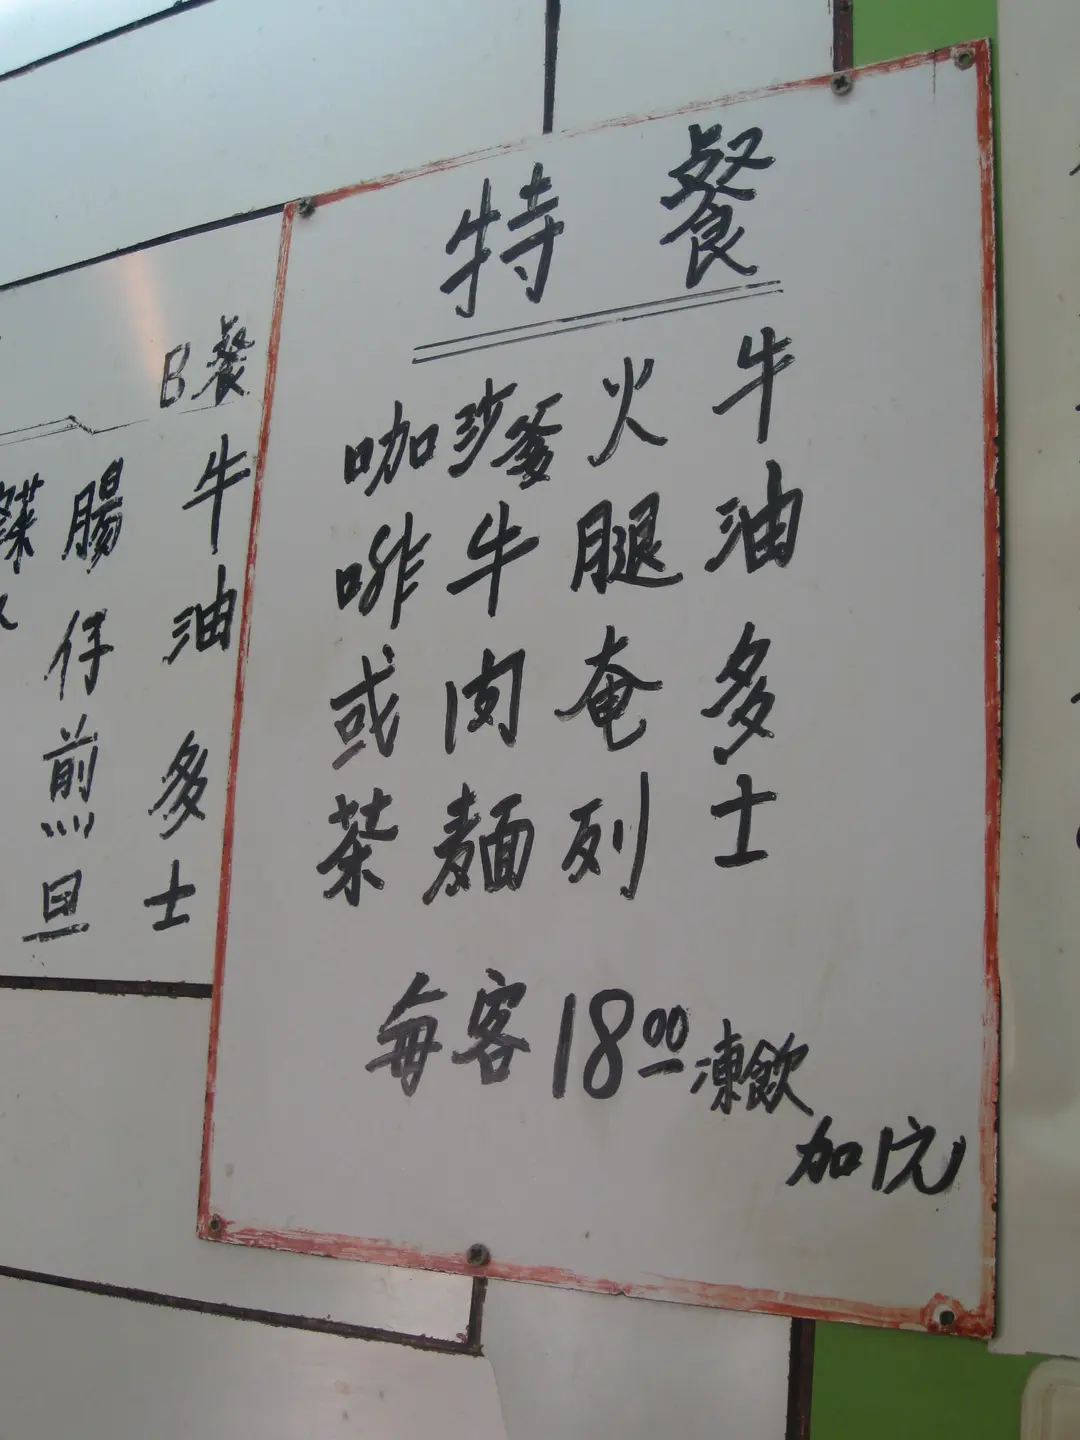 特餐
牛油多士
火腿奄列
沙爹牛肉麵
咖啡或茶
每客18.00
凍飲
加1元
B餐
牛油多士
腸仔煎旦